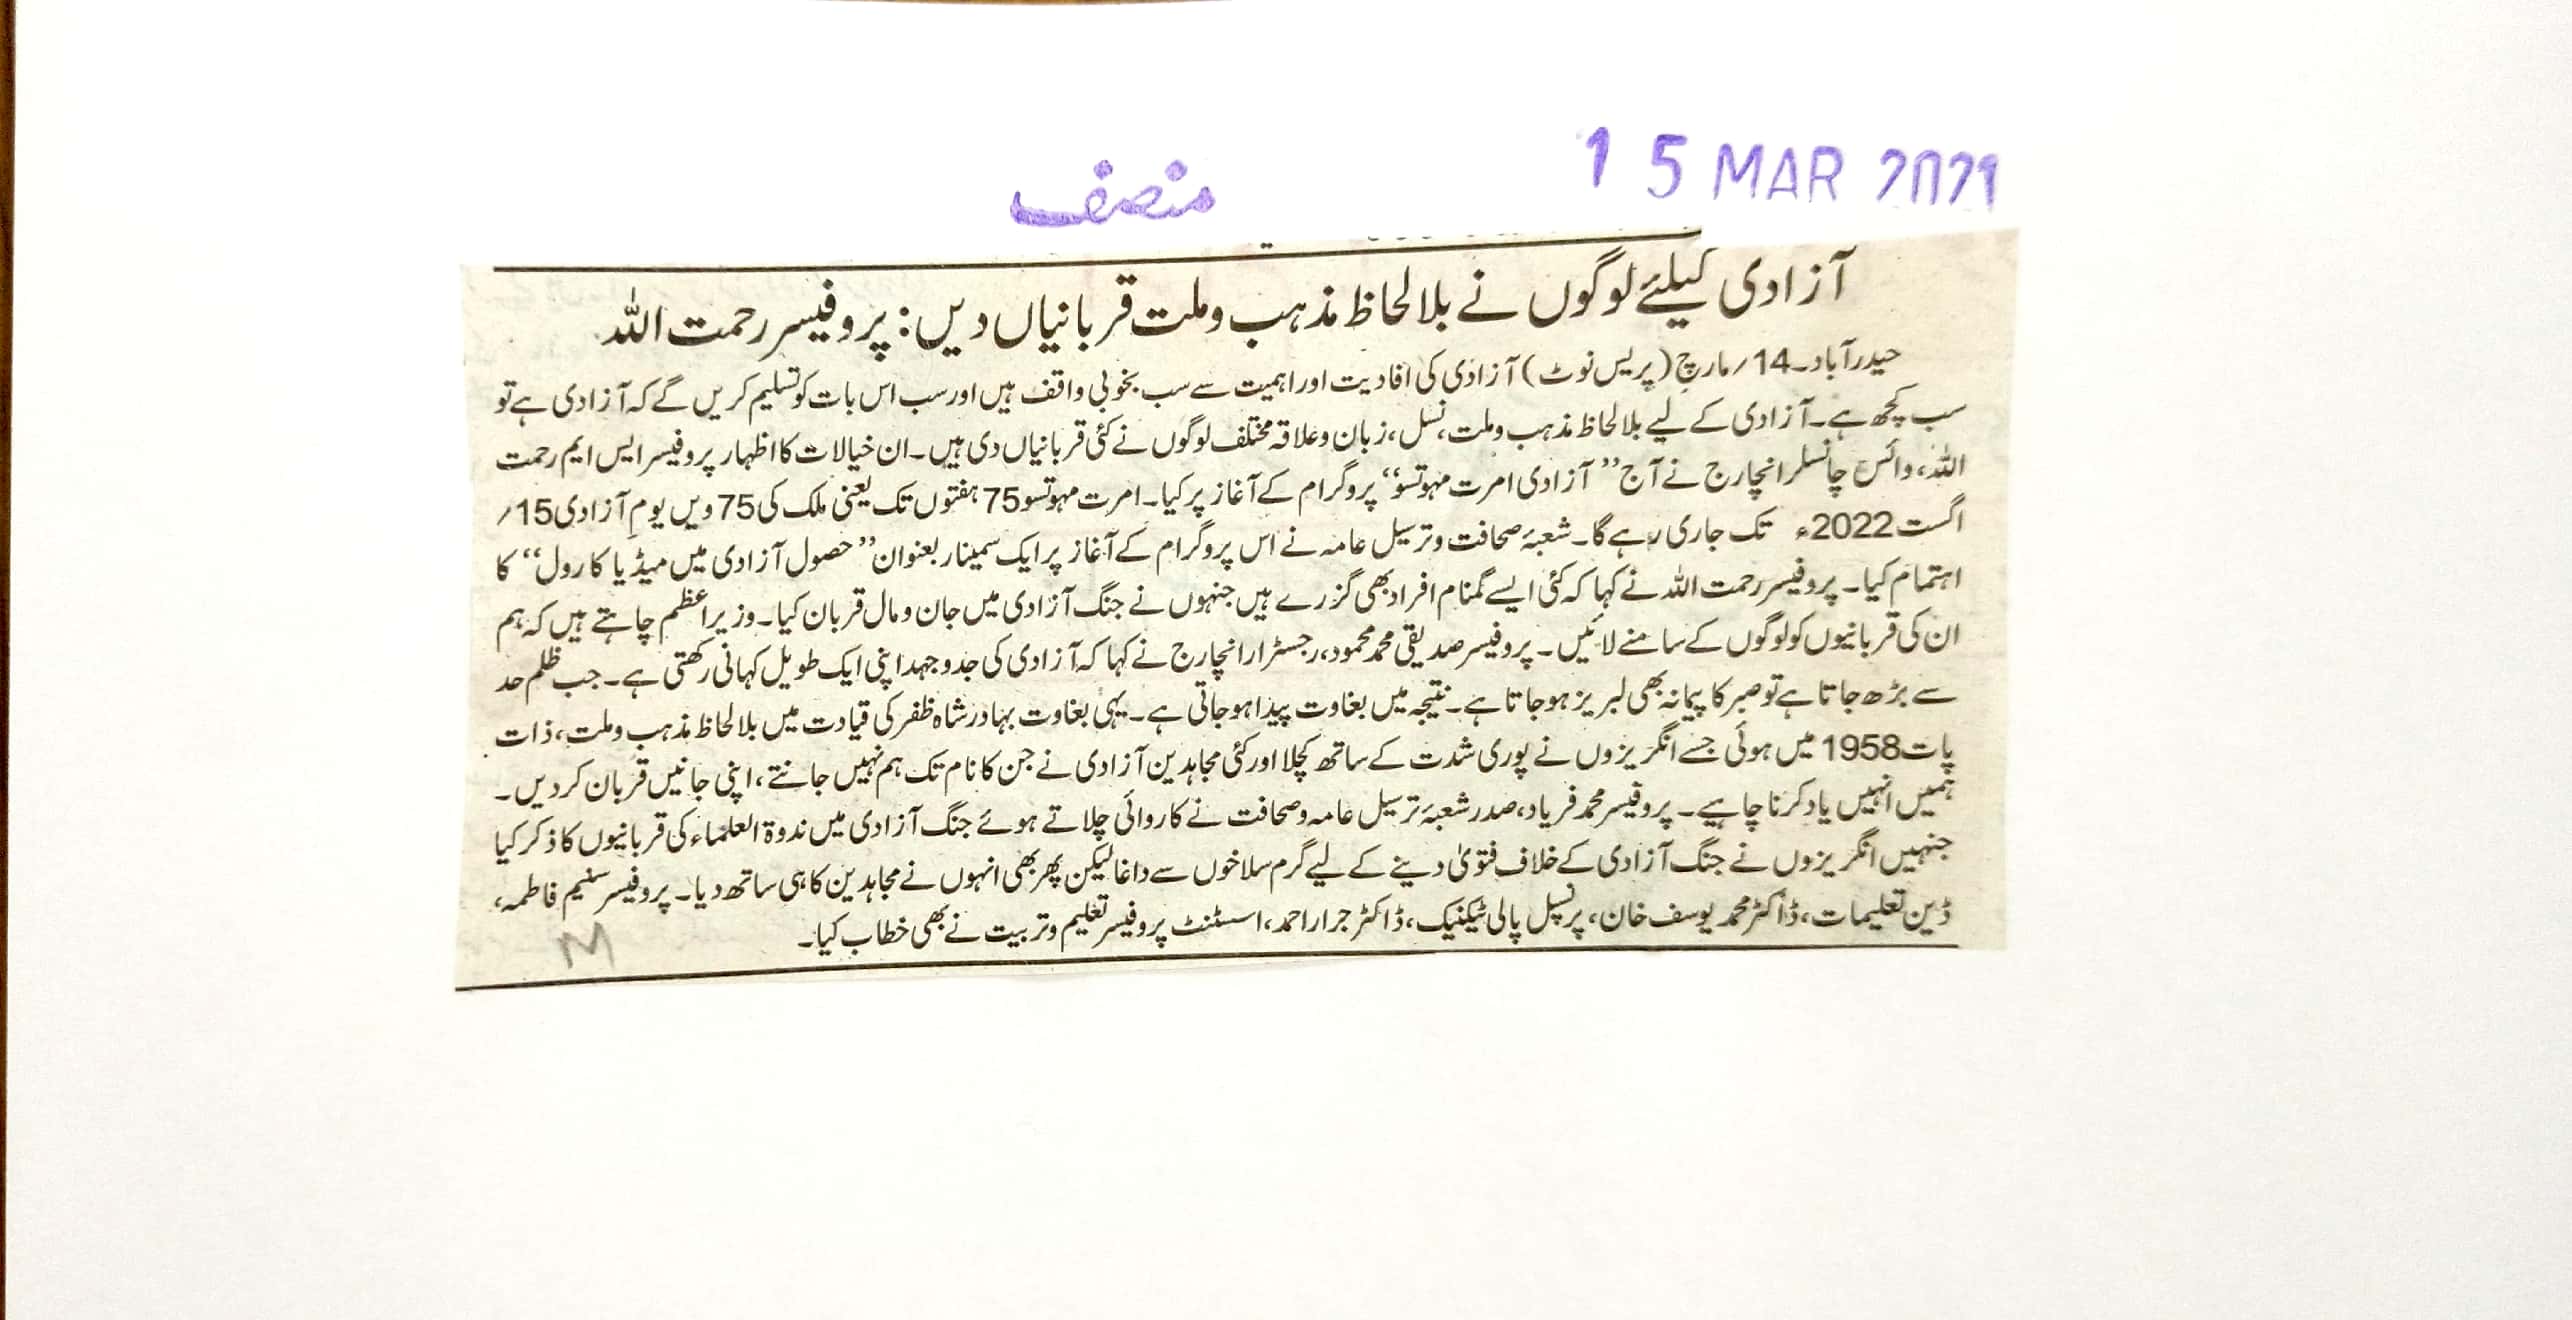 منصف
15 MAR 2021
آزادی کیلئے لوگوں نے بلا لحاظ مذہب و ملت قربانیاں دیں: پروفیسر رحمت اللہ
حیدرآباد۔14؍مارچ (پریس نوٹ) آزادی کی افادیت اور اہمیت سے سب بخوبی واقف ہیں اور سب اس بات کو تسلیم کریں گے کہ آزادی ہے تو
سب کچھ ہے۔ آزادی کے لیے بلا لحاظ مذہب و ملت، نسل، زبان و علاقہ مختلف لوگوں نے کئی قربانیاں دی ہیں۔ ان خیالات کا اظہار پروفیسر ایس ایم رحمت
اللہ، وائس چانسلر انچارج نے آج ’’آزادی امرت مہوتسو‘‘ پروگرام کے آغاز پر کیا۔ امرت مہوتسو 75 ہفتوں تک یعنی ملک کی 75 ویں یومِ آزادی 15؍
اگست 2022ء تک جاری رہے گا۔ شعبۂ صحافت و ترسیل عامہ نے اس پروگرام کے آغاز پر ایک سمینار بعنوان ’’حصول آزادی میں میڈیا کا رول‘‘ کا
اہتمام کیا۔ پروفیسر رحمت اللہ نے کہا کہ کئی ایسے گمنام افراد بھی گزرے ہیں جنہوں نے جنگ آزادی میں جان و مال قربان کیا۔ وزیر اعظم چاہتے ہیں کہ ہم
ان کی قربانیوں کو لوگوں کے سامنے لائیں۔ پروفیسر صدیقی محمد محمود، رجسٹرار انچارج نے کہا کہ آزادی کی جدوجہد اپنی ایک طویل کہانی رکھتی ہے۔ جب ظلم حد
سے بڑھ جاتا ہے تو صبر کا پیمانہ بھی لبریز ہو جاتا ہے۔ نتیجہ میں بغاوت پیدا ہو جاتی ہے۔ یہی بغاوت بہادر شاہ ظفر کی قیادت میں بلا لحاظ مذہب و ملت، ذات
پات 1958 میں ہوئی جسے انگریزوں نے پوری شدت کے ساتھ کچلا اور کئی مجاہدین آزادی نے جن کا نام تک ہم نہیں جانتے، اپنی جانیں قربان کردیں۔
ہمیں انہیں یاد کرنا چاہیے۔ پروفیسر محمد فریاد، صدر شعبۂ ترسیل عامہ و صحافت نے کاروائی چلاتے ہوئے جنگ آزادی میں ندوۃ العلماء کی قربانیوں کا ذکر کیا
جنہیں انگریزوں نے جنگ آزادی کے خلاف فتویٰ دینے کے لیے گرم سلاخوں سے داغا لیکن پھر بھی انہوں نے مجاہدین کا ہی ساتھ دیا۔ پروفیسر سنیم فاطمہ،
ڈین تعلیمات، ڈاکٹر محمد یوسف خان، پرنسپل پالی ٹیکنیک، ڈاکٹر جرار احمد، اسسٹنٹ پروفیسر تعلیم و تربیت نے بھی خطاب کیا۔
M